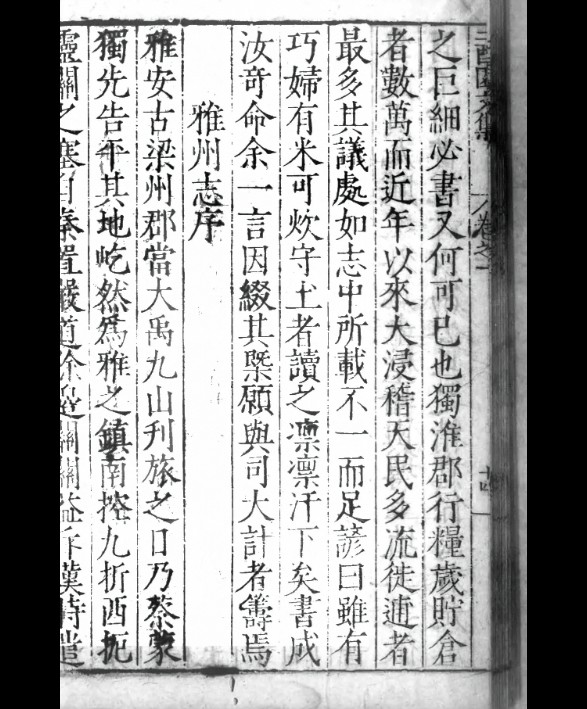 卷之一
之巨細必書又何可已也獨淮郡行糧歲貯倉
者數萬而近年以來大浸稽天民多流徙逋者
最多其議處如志中所載不一而足諺曰雖有
巧婦有米可炊守土者讀之凛凛汗下矣書成
汝奇命余一言因綴其槩願與司大計者籌焉
雅州志序
雅安古梁州郡當大禹九山刋旅之日乃蔡蒙
獨先告平其地屹然爲雅之鎮南控九折西扼
靈關之塞自秦置嚴道漢時遣